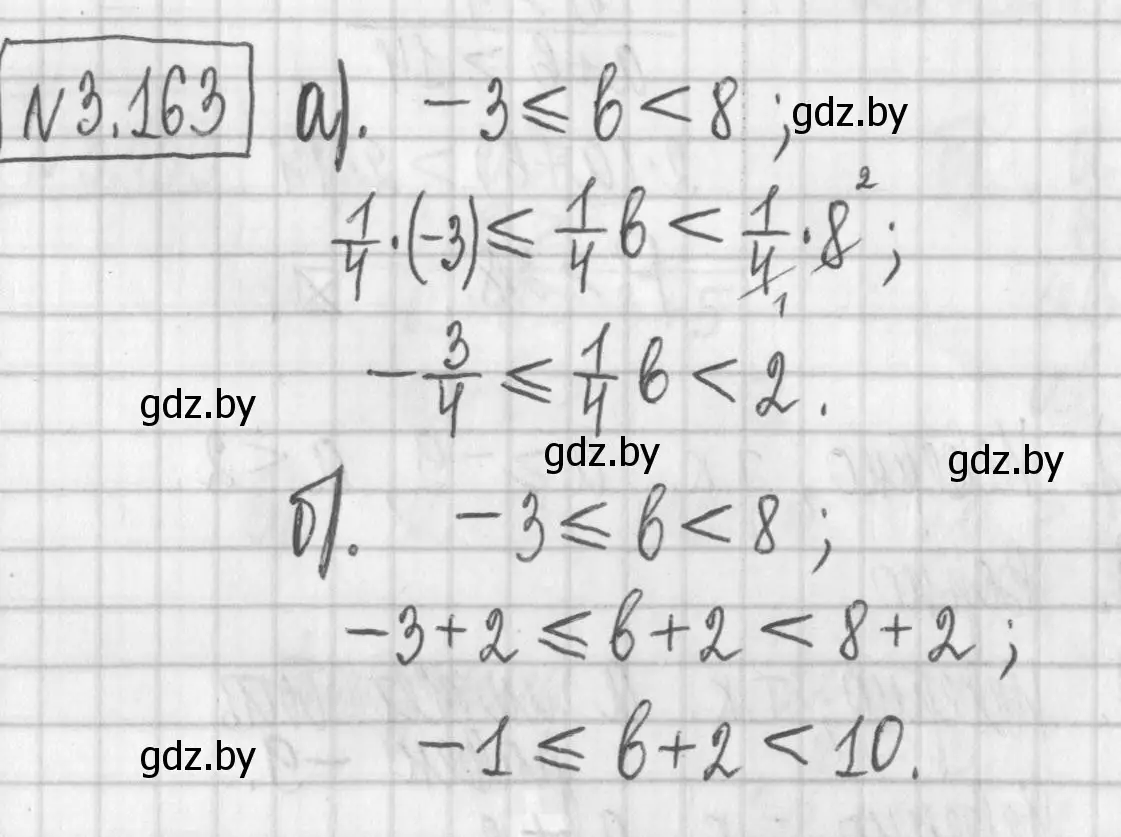 № 3.163 а). -3 ≤ b < 8 ; gdz.by
1/4 · (-3) ≤ 1/4 b < 1/4 · 8 ; 2 1
-3/4 ≤ 1/4 b < 2 .
gdz.by
gdz.by
gdz.by
б). -3 ≤ b < 8 ;
-3 + 2 ≤ b + 2 < 8 + 2 ;
-1 ≤ b + 2 < 10.
gdz.by